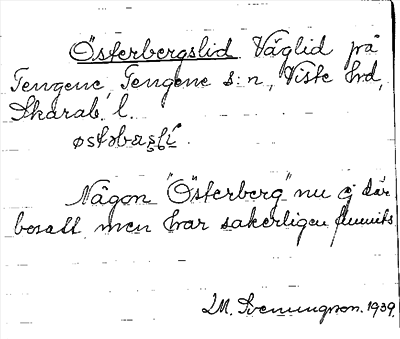 Österbergslid Väglid på
Tengene, Tengene s:n, Viste hrd,
Skarab. l.
Någon "Österberg" nu ej där
bosatt men har säkerligen funnits
I.M. Svenungson. 1939.